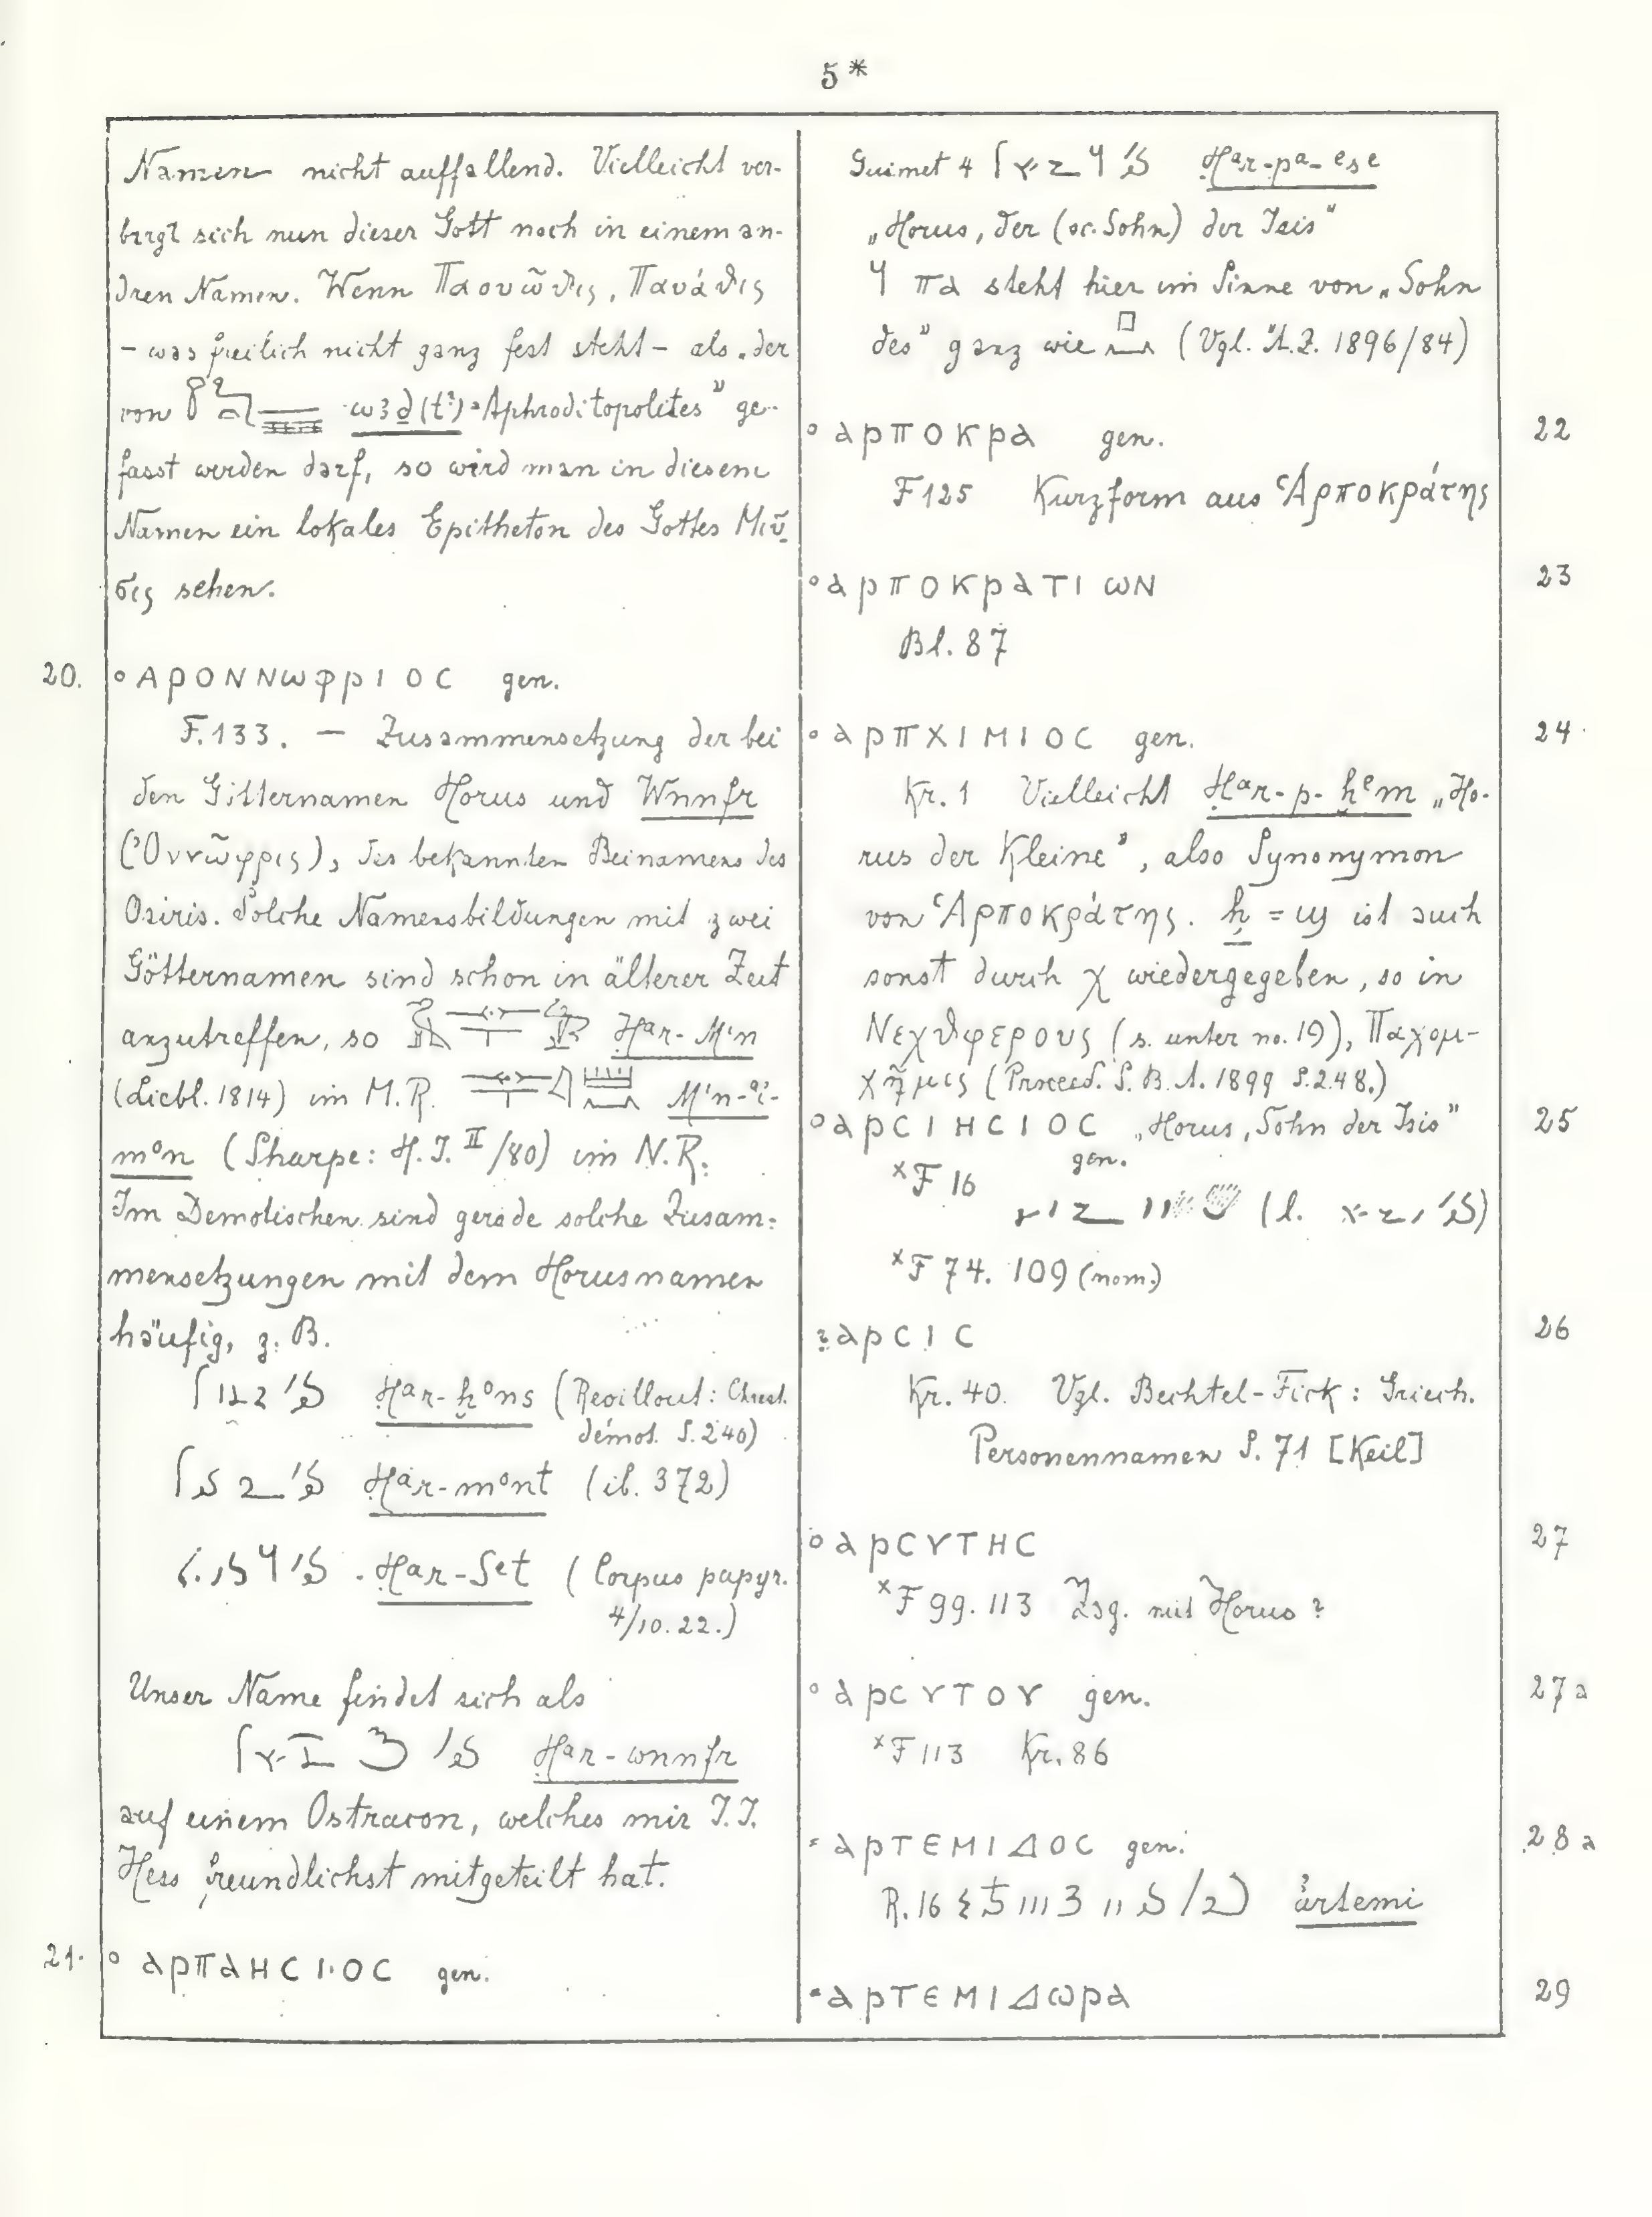 5*
Namen nicht auffallend. Vielleicht ver-
birgt sich nun dieser Gott noch in einem an-
dren Namen. Wenn Παουῶϑις, Παυάϑις
– was freilich nicht ganz fest steht – als „der
von wꜣḏ(t?) = Aphroditopolites" ge-
fasst werden darf, so wird man in diesem
Namen ein lokales Epitheton des Gottes Μιῦ-
σις sehen.
20. ° ΑΡΟΝΝωφΡΙΟC gen.
F. 133. – Zusammensetzung der bei
den Götternamen Horus und Wnnfr
(Ὀννῶφρις), des bekannten Beinamens des
Osiris. Solche Namensbildungen mit zwei
Götternamen sind schon in älterer Zeit
anzutreffen, so Har-Min
(Liebl. 1814) im M.R. Min-
mon (Sharpe: H.I. II/80) im N.R.
Im Demotischen sind gerade solche Zusam-
mensetzungen mit dem Horusnamen
häufig, z. B.
Ḥar-ḫons (Revillout: Chrest.
démot. S. 240)
Ḥar-mont (ib. 372)
Ḥar-Set (Corpus papyr.
4/10. 22.)
Unser Name findet sich als
Ḥar-wnnfr
auf einem Ostracon, welches mir J.J.
Hess freundlichst mitgeteilt hat.
21. ° ΑΡΠΑΗCΙΟC gen.
Guimet 4 Ḥar-pa-ese
„Horus, der (sc. Sohn) der Isis"
πα steht hier im Sinne von „Sohn
des" ganz wie (Vgl. Ä.Z. 1896/84)
° ΑΡΠΟΚΡΑ gen. 22
F 125 Kurzform aus Ἁρποκράτης
° ΑΡΠΟΚΡΑΤΙωΝ 23
Bl. 87
° ΑΡΠΧΙΜΙΟC gen. 24
Kr. 1 Vielleicht Ḥar-p-ḫem „Ho-
rus der Kleine", also Synonymon
von Ἁρποκράτης. ḫ = ϣ ist auch
sonst durch χ wiedergegeben, so in
Νεχϑφερους (s. unter no. 19), Παχομ-
χῆμις (Proceed. S.B.A. 1899 S. 248.)
° ΑΡCΙΗCΙΟC „Horus, Sohn der Isis" 25
gen.
ˣF 16 (l. )
ˣF 74. 109 (nom.)
ΑΡCΙC 26
Kr. 40. Vgl. Bechtel-Fick: Griech.
Personennamen S. 71 [Keil]
° ΑΡCΥΤΗC 27
ˣF 99. 113 Zsg. mit Horus?
° ΑΡCΥΤΟΥ gen. 27a
ˣF 113 Kr. 86
ΑΡΤΕΜΙΔΟC gen. 28a
R. 16 artemi
ΑΡΤΕΜΙΔωΡΑ 29